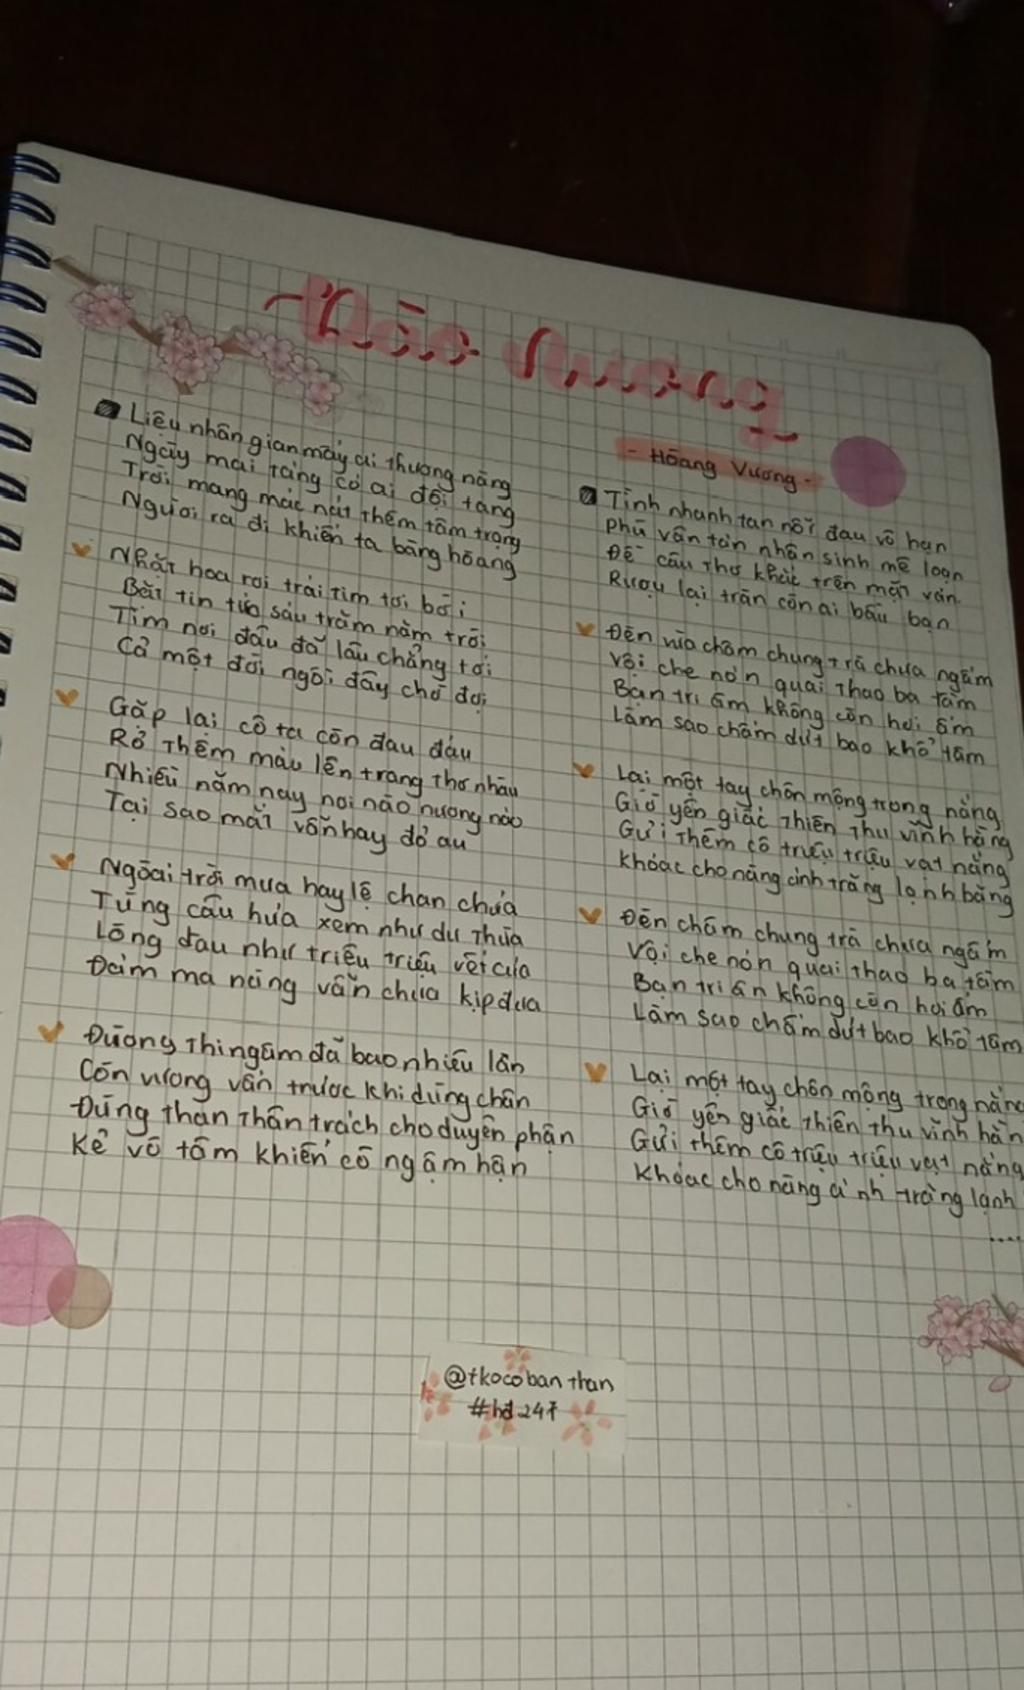 Đào Nương
- Hoàng Vương -
Liệu nhân gian mấy ai thương nàng
Ngày mai ráng có ai đội tang
Trời mang mác nát thêm tâm trạng
Người ra đi khiến ta bàng hoàng
Nhặt hoa rơi trái tim tơi bời
Bặt tin tức sáu trăm năm trời
Tìm nơi đâu đã lâu chẳng tới
Cả một đời ngồi đây chờ đợi
Gặp lại cô ta còn đau đáu
Rỏ thêm màu lên trang thơ nhàu
Nhiều năm nay nơi nào nương náo
Tại sao mắt vẫn hay đỏ au
Ngoài trời mưa hay lệ chan chứa
Từng câu hứa xem như dư thừa
Lòng đau như triệu triệu vết cứa
Đám ma nàng vẫn chưa kịp đưa
Đường thi ngâm đã bao nhiêu lần
Còn vương vấn trước khi dừng chân
Đừng than thân trách cho duyên phận
Kẻ vô tâm khiến cô ngậm hận
Tỉnh nhanh tan nỗi đau vô hạn
Phù vân tàn nhân sinh mê loạn
Đề câu thơ khắc trên mặt ván
Rượu lại tràn còn ai bầu bạn
Đèn vừa châm chung trà chưa ngấm
Vội che nón quai thao ba tầm
Bạn tri âm không còn hơi ấm
Làm sao chấm dứt bao khổ tâm
Lại một tay chôn mộng trong nắng
Giờ yên giấc thiên thu vĩnh hằng
Gửi thêm cô triệu triệu vạt nắng
Khoác cho nàng ánh trăng lạnh băng
Đèn châm chung trà chưa ngấm
Vội che nón quai thao ba tầm
Bạn tri ân không còn hơi ấm
Làm sao chấm dứt bao khổ tâm
Lại một tay chôn mộng trong nắng
Giờ yên giấc thiên thu vĩnh hằn
Gửi thêm cô triệu triệu vạt nắng
Khoác cho nàng ánh trăng lạnh
....
@tkocobanthan
#hd247